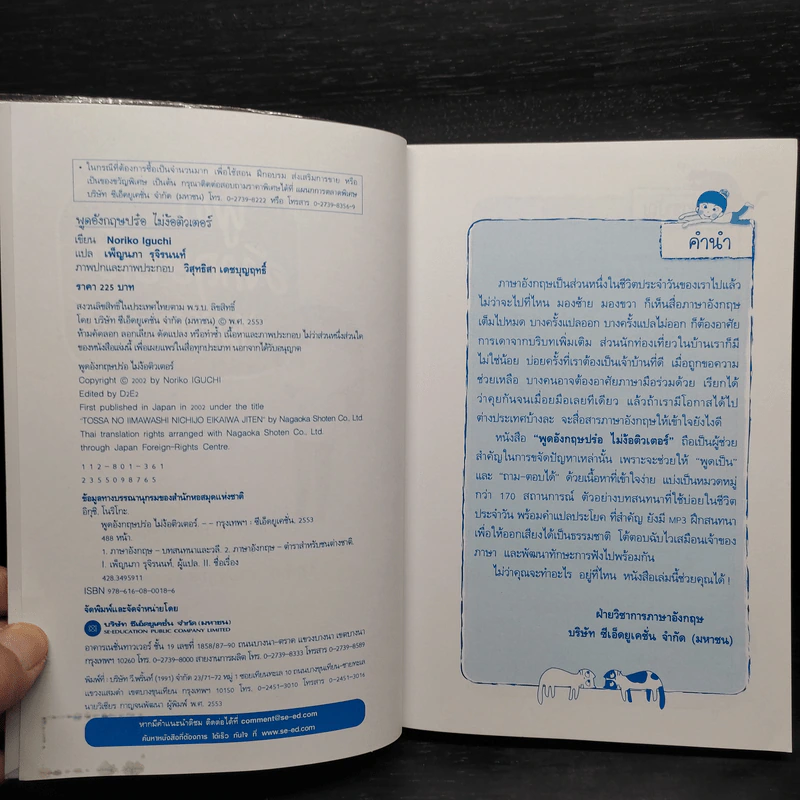 • ในกรณีที่ต้องการซื้อเป็นจำนวนมาก เพื่อใช้สอน ฝึกอบรม ส่งเสริมการขาย หรือ
เป็นของขวัญพิเศษ เป็นต้น กรุณาติดต่อสอบถามราคาพิเศษได้ที่ แผนกการตลาดพิเศษ
บริษัท ซีเอ็ดยูเคชั่น จำกัด (มหาชน) โทร. 0-2739-8222 หรือ โทรสาร 0-2739-8356-9
พูดอังกฤษปร๋อ ไม่ง้อติวเตอร์
เขียน Noriko Iguchi
แปล เพ็ญนภา รุจิรนนท์
ภาพปกและภาพประกอบ วิสุทธิสา เดชบุญฤทธิ์
ราคา 225 บาท
สงวนลิขสิทธิ์ในประเทศไทยตาม พ.ร.บ. ลิขสิทธิ์
โดย บริษัท ซีเอ็ดยูเคชั่น จำกัด (มหาชน) © พ.ศ. 2553
ห้ามคัดลอก ลอกเลียน ดัดแปลง หรือทำซ้ำ เนื้อหาและภาพประกอบ ไม่ว่าส่วนหนึ่งส่วนใด
ของหนังสือเล่มนี้ เพื่อเผยแพร่ในสื่อทุกประเภท นอกจากได้รับอนุญาต
พูดอังกฤษปร๋อ ไม่ง้อติวเตอร์
Copyright © 2002 by Noriko IGUCHI
Edited by D2E2
First published in Japan in 2002 under the title
"TOSSA NO IIMAWASHI NICHIJO EIKAIWA JITEN" by Nagaoka Shoten Co., Ltd.
Thai translation rights arranged with Nagaoka Shoten Co., Ltd.
through Japan Foreign-Rights Centre.
112-801-361
2355098765
ข้อมูลทางบรรณานุกรมของสำนักหอสมุดแห่งชาติ
อิกุชิ, โนริโกะ.
พูดอังกฤษปร๋อ ไม่ง้อติวเตอร์. -- กรุงเทพฯ : ซีเอ็ดยูเคชั่น, 2553
488 หน้า.
1. ภาษาอังกฤษ - บทสนทนาและวลี. 2. ภาษาอังกฤษ - ตำราสำหรับชนต่างชาติ.
I. เพ็ญนภา รุจิรนนท์, ผู้แปล. II. ชื่อเรื่อง
428.3495911
ISBN 978-616-08-0018-6
จัดพิมพ์และจัดจำหน่ายโดย
บริษัท ซีเอ็ดยูเคชั่น จำกัด (มหาชน)
SE-EDUCATION PUBLIC COMPANY LIMITED
อาคารเนชั่นทาวเวอร์ ชั้น 19 เลขที่ 1858/87-90 ถนนบางนา-ตราด แขวงบางนา เขตบางนา
กรุงเทพฯ 10260 โทร. 0-2739-8000 สายงานการผลิต โทร. 0-2739-8333 โทรสาร 0-2739-8589
พิมพ์ที่ : บริษัท วี.พริ้นท์ (1991) จำกัด 23/71-72 หมู่ 1 ซอยเทียนทะเล 10 ถนนบางขุนเทียน-ชายทะเล
แขวงแสมดำ เขตบางขุนเทียน กรุงเทพฯ 10150 โทร. 0-2451-3010 โทรสาร 0-2451-3016
นายวิเชียร กาญจนพัฒนา ผู้พิมพ์ พ.ศ. 2553
หากมีคำแนะนำติชม ติดต่อได้ที่ comment@se-ed.com
ค้นหาหนังสือที่ต้องการ ได้เร็ว ทันใจ ที่ www.se-ed.com
คำนำ
ภาษาอังกฤษเป็นส่วนหนึ่งในชีวิตประจำวันของเราไปแล้ว
ไม่ว่าจะไปที่ไหน มองซ้าย มองขวา ก็เห็นสื่อภาษาอังกฤษ
เต็มไปหมด บางครั้งแปลออก บางครั้งแปลไม่ออก ก็ต้องอาศัย
การเดาจากบริบทเพิ่มเติม ส่วนนักท่องเที่ยวในบ้านเราก็มี
ไม่ใช่น้อย บ่อยครั้งที่เราต้องเป็นเจ้าบ้านที่ดี เมื่อถูกขอความ
ช่วยเหลือ บางคนอาจต้องอาศัยภาษามือร่วมด้วย เรียกได้
ว่าคุยกันจนเมื่อยมือเลยทีเดียว แล้วถ้าเรามีโอกาสได้ไป
ต่างประเทศบ้างละ จะสื่อสารภาษาอังกฤษให้เข้าใจยังไงดี
หนังสือ "พูดอังกฤษปร๋อ ไม่ง้อติวเตอร์" ถือเป็นผู้ช่วย
สำคัญในการขจัดปัญหาเหล่านั้น เพราะจะช่วยให้ "พูดเป็น"
และ "ถาม-ตอบได้" ด้วยเนื้อหาที่เข้าใจง่าย แบ่งเป็นหมวดหมู่
กว่า 170 สถานการณ์ ตัวอย่างบทสนทนาที่ใช้บ่อยในชีวิต
ประจำวัน พร้อมคำแปลประโยค ที่สำคัญ ยังมี MP3 ฝึกสนทนา
เพื่อให้ออกเสียงได้เป็นธรรมชาติ โต้ตอบฉับไวเสมือนเจ้าของ
ภาษา และพัฒนาทักษะการฟังไปพร้อมกัน
ไม่ว่าคุณจะทำอะไร อยู่ที่ไหน หนังสือเล่มนี้ช่วยคุณได้ !
ฝ่ายวิชาการภาษาอังกฤษ
บริษัท ซีเอ็ดยูเคชั่น จำกัด (มหาชน)